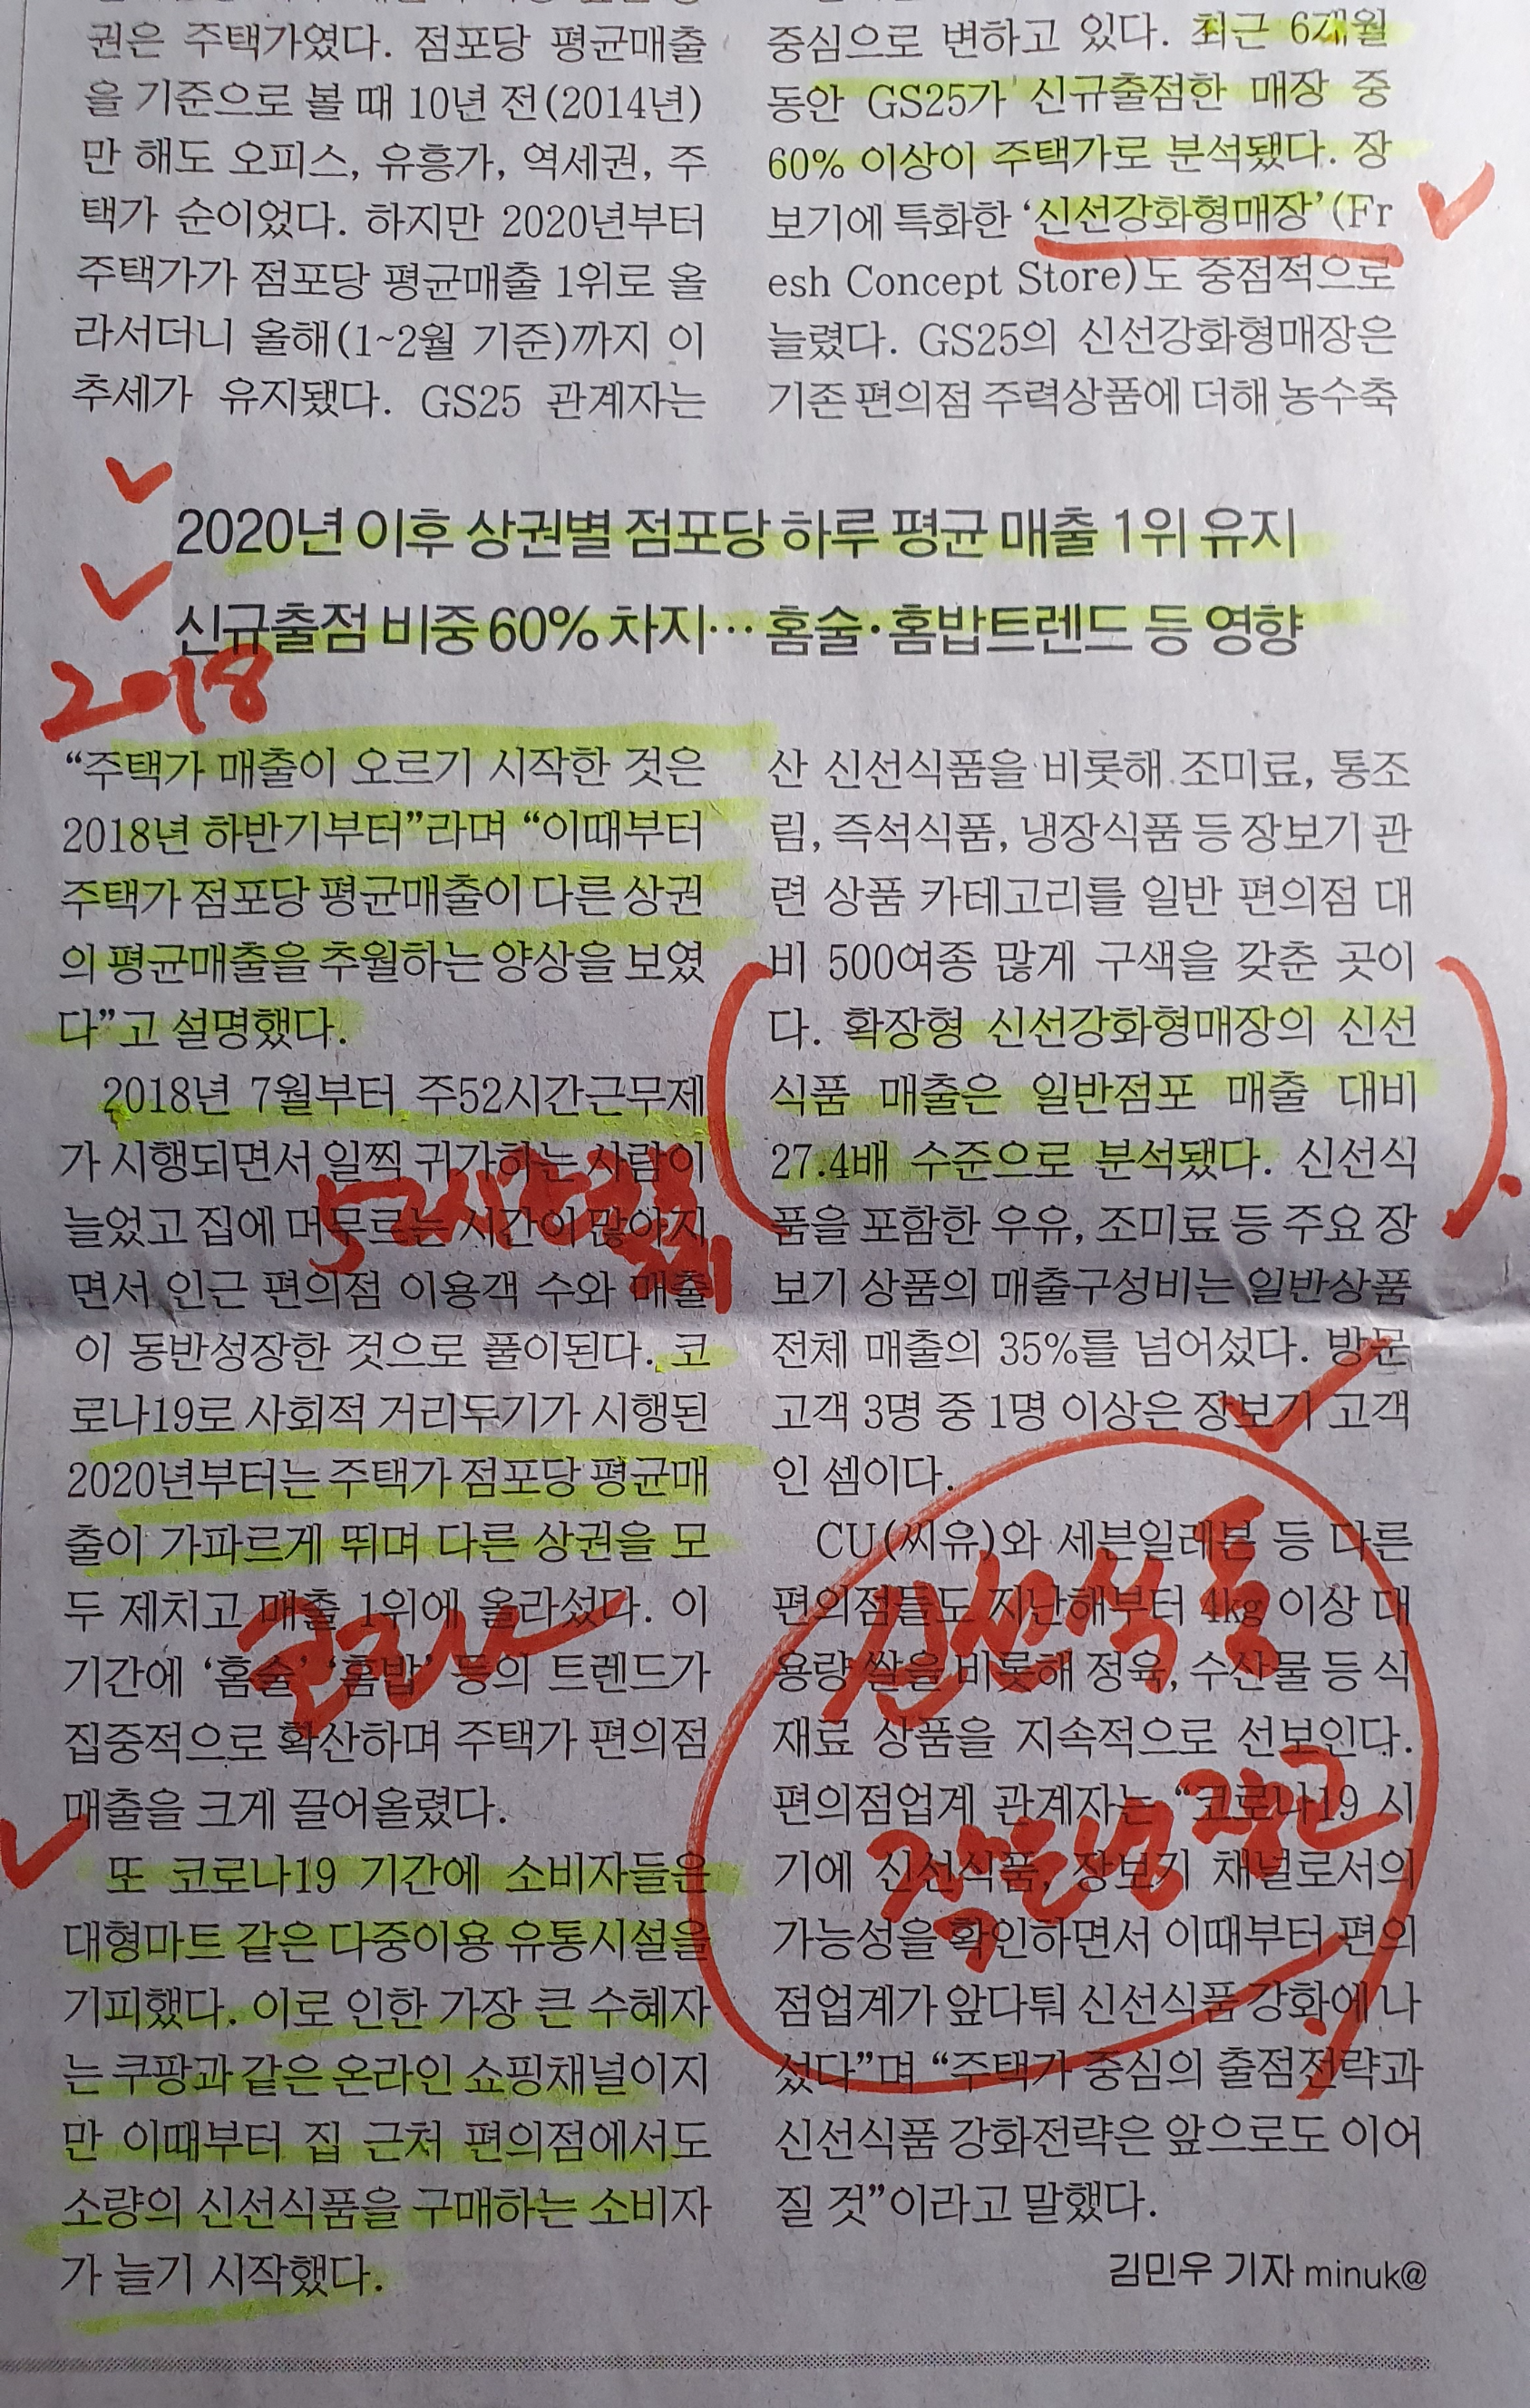 권은 주택가였다. 점포당 평균매출
을 기준으로 볼 때 10년 전(2014년)
만 해도 오피스, 유흥가, 역세권, 주
택가 순이었다. 하지만 2020년부터
주택가가 점포당 평균매출 1위로 올
라서더니 올해(1~2월 기준)까지 이
추세가 유지됐다. GS25 관계자는
중심으로 변하고 있다. 최근 6개월
동안 GS25가 신규출점한 매장 중
60% 이상이 주택가로 분석됐다. 장
보기에 특화한 ‘신선강화형매장’(Fr
esh Concept Store)도 중점적으로
늘렸다. GS25의 신선강화형매장은
기존 편의점 주력상품에 더해 농수축
2020년 이후 상권별 점포당 하루 평균 매출 1위 유지
신규출점 비중 60% 차지… 홈술·홈밥트렌드 등 영향
2018
“주택가 매출이 오르기 시작한 것은
2018년 하반기부터”라며 “이때부터
주택가 점포당 평균매출이 다른 상권
의 평균매출을 추월하는 양상을 보였
다”고 설명했다.
2018년 7월부터 주52시간근무제
가 시행되면서 일찍 귀가하는 사람이
늘었고 집에 머무르는 시간이 많아지
면서 인근 편의점 이용객 수와 매출
이 동반성장한 것으로 풀이된다. 코
로나19로 사회적 거리두기가 시행된
2020년부터는 주택가 점포당 평균매
출이 가파르게 뛰며 다른 상권을 모
두 제치고 매출 1위에 올라섰다. 이
기간에 ‘홈술’ ‘홈밥’ 등의 트렌드가
집중적으로 확산하며 주택가 편의점
매출을 크게 끌어올렸다.
코로나
또 코로나19 기간에 소비자들은
대형마트 같은 다중이용 유통시설을
기피했다. 이로 인한 가장 큰 수혜자
는 쿠팡과 같은 온라인 쇼핑채널이지
만 이때부터 집 근처 편의점에서도
소량의 신선식품을 구매하는 소비자
가 늘기 시작했다.
산 신선식품을 비롯해 조미료, 통조
림, 즉석식품, 냉장식품 등 장보기 관
련 상품 카테고리를 일반 편의점 대
비 500여종 많게 구색을 갖춘 곳이
다. 확장형 신선강화형매장의 신선
식품 매출은 일반점포 매출 대비
27.4배 수준으로 분석됐다. 신선식
품을 포함한 우유, 조미료 등 주요 장
보기 상품의 매출구성비는 일반상품
전체 매출의 35%를 넘어섰다. 방문
고객 3명 중 1명 이상은 장보기 고객
인 셈이다.
CU(씨유)와 세븐일레븐 등 다른
편의점들도 지난해부터 4kg 이상 대
용량 쌀을 비롯해 정육, 수산물 등 식
재료 상품을 지속적으로 선보인다.
편의점업계 관계자는 “코로나19 시
기에 신선식품, 장보기 채널로서의
가능성을 확인하면서 이때부터 편의
점업계가 앞다퉈 신선식품 강화에 나
섰다”며 “주택가 중심의 출점전략과
신선식품 강화전략은 앞으로도 이어
질 것”이라고 말했다.
신선식품
김민우 기자 minuk@